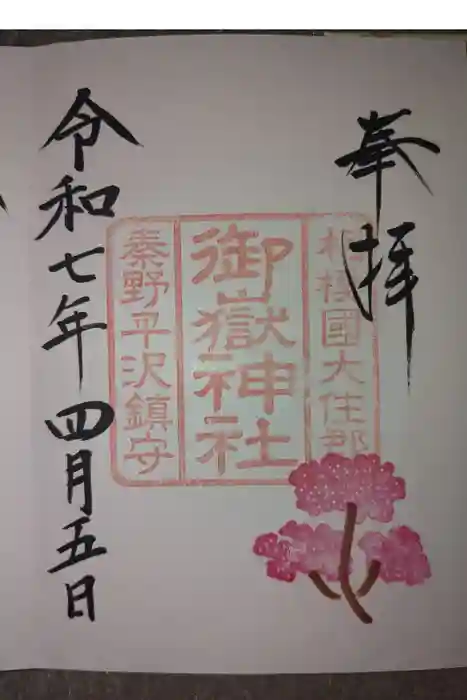 奉拝
相模國大住郡
御嶽神社
秦野平沢鎮守
令和七年四月五日